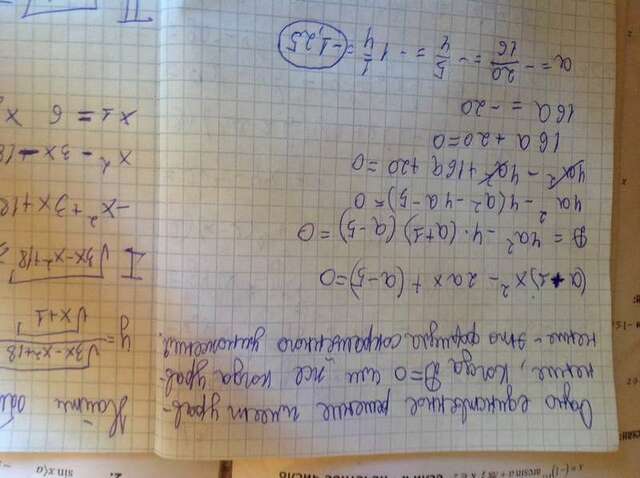 если
2.
sin x(a
Одно единственное решение имеет урав-
нение, когда D=0 или же когда урав-
нение - это формула сокращённого умножения.
(a+1)x² - 2ax + (a-5)=0
D = 4a² - 4·(a+1)(a-5)=0
4a² - 4(a² - 4a - 5)=0
4a² - 4a² + 16a + 20 = 0
16a + 20 = 0
16a = -20
a = -20/16 = -5/4 = -1 1/4 = -1,25
Найти
y = √(3x-x²+18) / √(x+1)
I √(3x-x²+18)
-x² + 3x + 18
x² - 3x - 18
x1 = 6 x
II